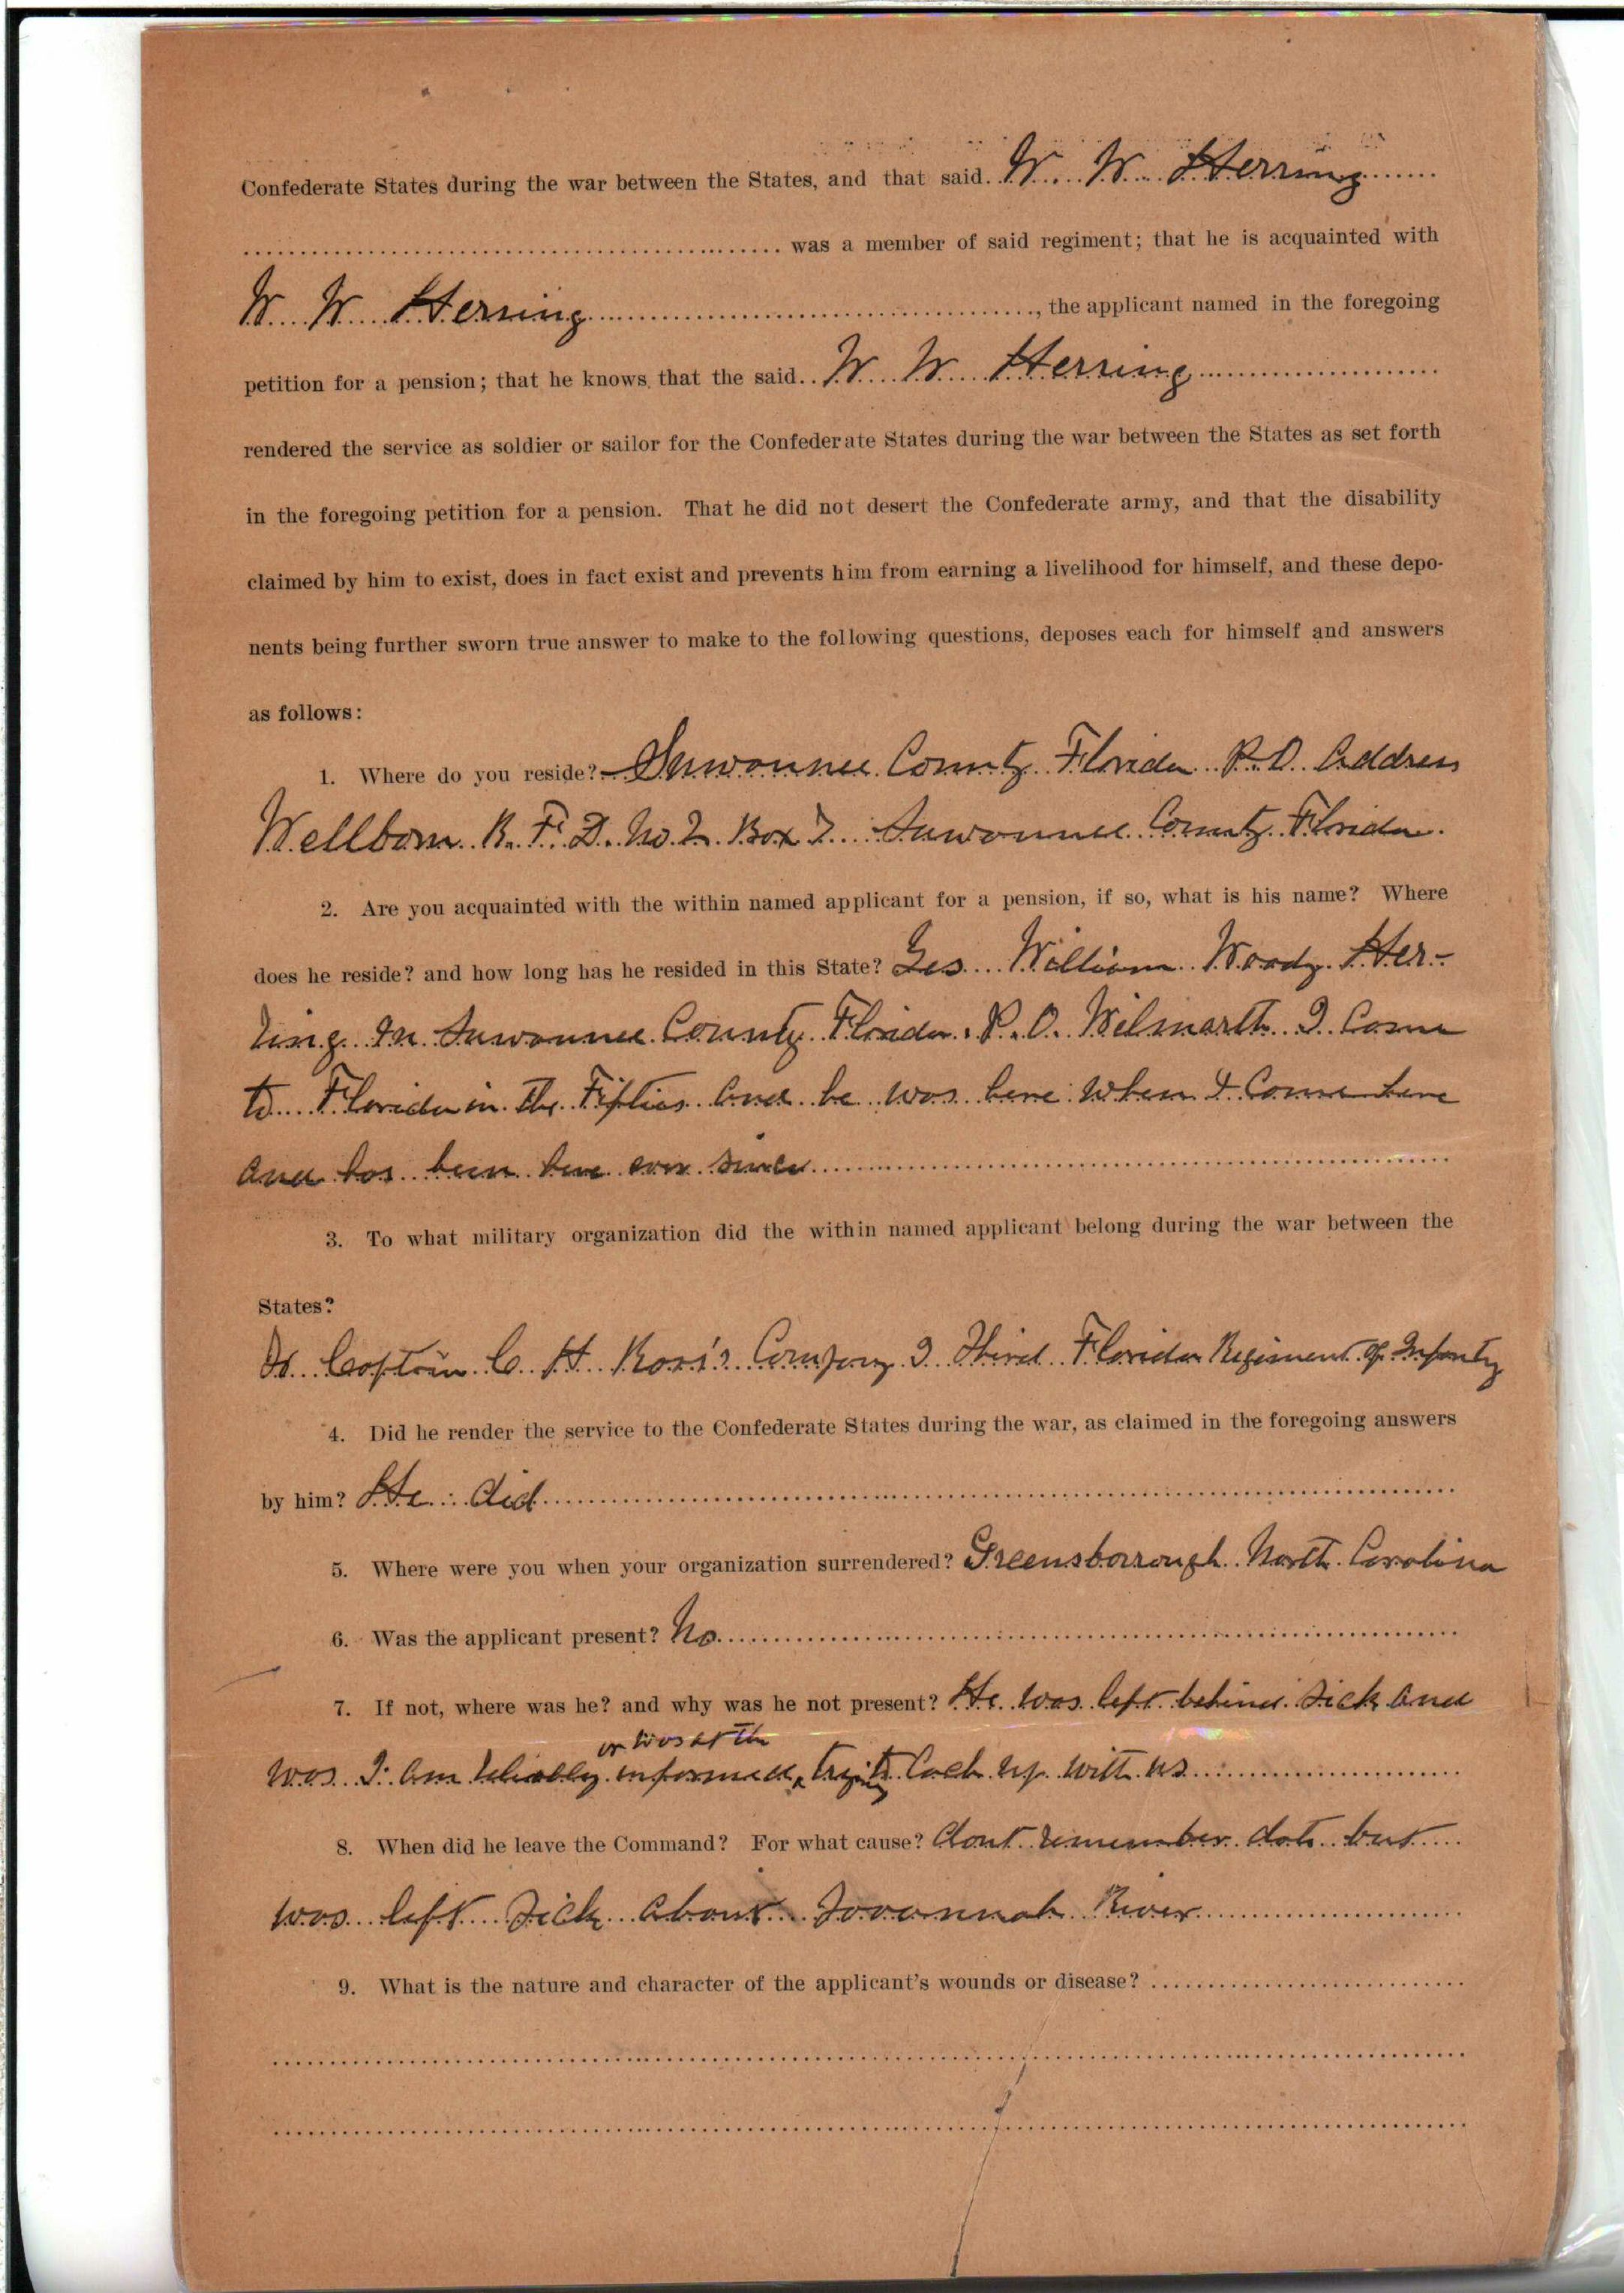 Confederate States during the war between the States, and that said W. W. Herring
was a member of said regiment; that he is acquainted with
W. W. Herring, the applicant named in the foregoing
petition for a pension; that he knows that the said W. W. Herring
rendered the service as soldier or sailor for the Confederate States during the war between the States as set forth
in the foregoing petition for a pension. That he did not desert the Confederate army, and that the disability
claimed by him to exist, does in fact exist and prevents him from earning a livelihood for himself, and these depo-
nents being further sworn true answer to make to the following questions, deposes each for himself and answers
as follows:
1. Where do you reside? Suwannee County Florida P.O. Address
Wellborn R.F.D. No. 2. Box 7. Suwannee County Florida.
2. Are you acquainted with the within named applicant for a pension, if so, what is his name? Where
does he reside? and how long has he resided in this State? Yes William Woody Her-
ring In Suwannee County Florida. P.O. Wilmarth I Came
to Florida in The Fifties and he was here when I Came here
and has been here ever since
3. To what military organization did the within named applicant belong during the war between the
States?
To Captain C. H. Ross's Company I Third Florida Regiment of Infantry
4. Did he render the service to the Confederate States during the war, as claimed in the foregoing answers
by him? He did
5. Where were you when your organization surrendered? Greensborrough North Carolina
6. Was the applicant present? No
7. If not, where was he? and why was he not present? He was left behind sick and
or was at the
was I am reliably informed, trying to Cach up with us
8. When did he leave the Command? For what cause? dont remember date but
was left sick about Savannah River
9. What is the nature and character of the applicant's wounds or disease?